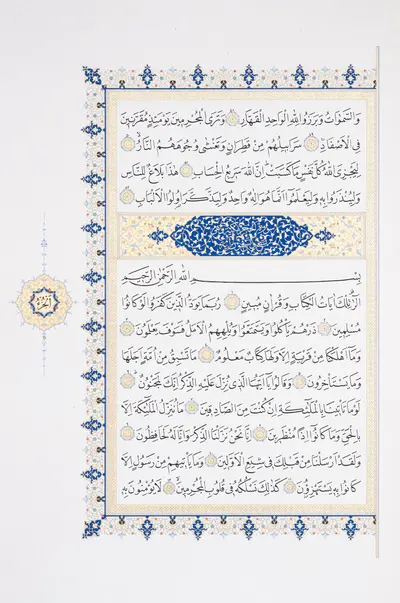 وَالسَّمٰوَاتُ وَبَرَزُوا لِلّٰهِ الْوَاحِدِ الْقَهَّارِ وَتَرَى الْمُجْرِمِينَ يَوْمَئِذٍ مُقَرَّنِينَ
فِي الْاَصْفَادِ سَرَابِيلُهُمْ مِنْ قَطِرَانٍ وَتَغْشٰى وُجُوهَهُمُ النَّارُ
لِيَجْزِيَ اللّٰهُ كُلَّ نَفْسٍ مَا كَسَبَتْ اِنَّ اللّٰهَ سَرِيعُ الْحِسَابِ هٰذَا بَلَاغٌ لِلنَّاسِ
وَلِيُنْذَرُوا بِهِ وَلِيَعْلَمُوا اَنَّمَا هُوَ اِلٰهٌ وَاحِدٌ وَلِيَذَّكَّرَ اُولُوا الْاَلْبَابِ
بِسْمِ اللّٰهِ الرَّحْمٰنِ الرَّحِيمِ
الٓرٰ تِلْكَ اٰيَاتُ الْكِتَابِ وَقُرْاٰنٍ مُبِينٍ رُبَمَا يَوَدُّ الَّذِينَ كَفَرُوا لَوْ كَانُوا
مُسْلِمِينَ ذَرْهُمْ يَأْكُلُوا وَيَتَمَتَّعُوا وَيُلْهِهِمُ الْاَمَلُ فَسَوْفَ يَعْلَمُونَ
وَمَا اَهْلَكْنَا مِنْ قَرْيَةٍ اِلَّا وَلَهَا كِتَابٌ مَعْلُومٌ مَا تَسْبِقُ مِنْ اُمَّةٍ اَجَلَهَا
وَمَا يَسْتَأْخِرُونَ وَقَالُوا يَا اَيُّهَا الَّذِي نُزِّلَ عَلَيْهِ الذِّكْرُ اِنَّكَ لَمَجْنُونٌ
لَوْ مَا تَأْتِينَا بِالْمَلٰئِكَةِ اِنْ كُنْتَ مِنَ الصَّادِقِينَ مَا نُنَزِّلُ الْمَلٰئِكَةَ اِلَّا
بِالْحَقِّ وَمَا كَانُوا اِذًا مُنْظَرِينَ اِنَّا نَحْنُ نَزَّلْنَا الذِّكْرَ وَاِنَّا لَهُ لَحَافِظُونَ
وَلَقَدْ اَرْسَلْنَا مِنْ قَبْلِكَ فِي شِيَعِ الْاَوَّلِينَ وَمَا يَأْتِيهِمْ مِنْ رَسُولٍ اِلَّا
كَانُوا بِهِ يَسْتَهْزِؤُنَ كَذٰلِكَ نَسْلُكُهُ فِي قُلُوبِ الْمُجْرِمِينَ لَا يُؤْمِنُونَ بِهِ